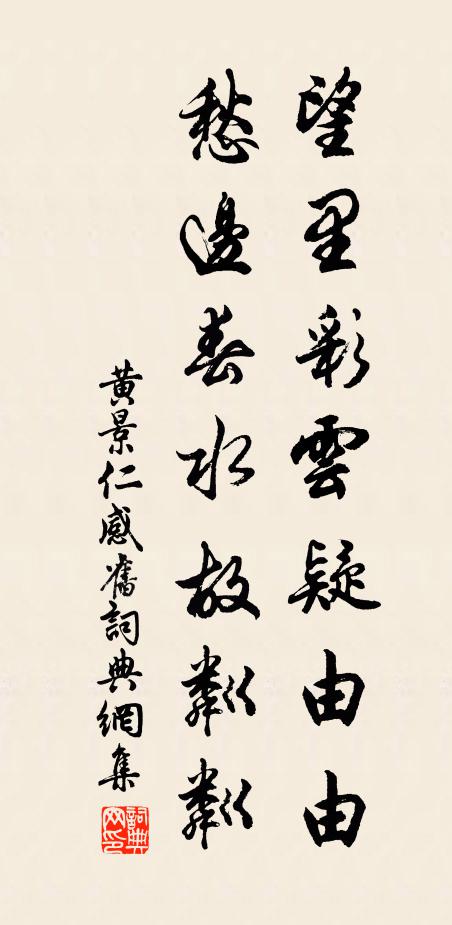 望里彩雲疑由由
愁邊春水故粼粼
黃景仁感舊詞典網集
詞典
网印